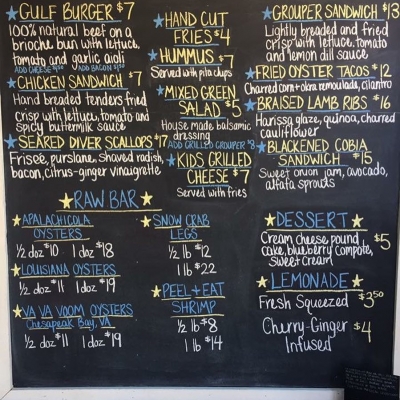 GULF BURGER $7
100% natural beef on a
brioche bun with lettuce,
tomato and garlic aioli
ADD CHEESE ADD BACON
CHICKEN SANDWICH $7
Hand breaded tenders fried
crisp with lettuce, tomato and
spicy buttermilk sauce
SEARED DIVER SCALLOPS $17
Friseé, purslane, shaved radish,
bacon, citrus-ginger vinaigrette
HAND CUT
FRIES $4
HUMMUS $7
Served with pita chips
MIXED GREEN
SALAD $5
House made balsamic
dressing
ADD GRILLED GROUPER
KIDS GRILLED
CHEESE $7
Served with fries
GROUPER SANDWICH $13
Lightly breaded and fried
crisp with lettuce, tomato
and lemon dill sauce
FRIED OYSTER TACOS $12
Charred corn + okra remoulade, cilantro
BRAISED LAMB RIBS $16
Harissa glaze, quinoa, charred
cauliflower
BLACKENED COBIA
SANDWICH $15
Sweet onion jam, avocado,
alfalfa sprouts
RAW BAR
APALACHICOLA
OYSTERS
½ doz $10 1 doz $18
LOUISIANA OYSTERS
½ doz $11 1 doz $19
VA VA VOOM OYSTERS
Chesapeak Bay, VA
½ doz $11 1 doz $19
SNOW CRAB
LEGS
½ lb $12
1 lb $22
PEEL + EAT
SHRIMP
½ lb $8
1 lb $14
DESSERT
Cream cheese pound $5
cake, blueberry compote,
sweet cream
LEMONADE
Fresh Squeezed $3.50
Cherry-Ginger $4
Infused